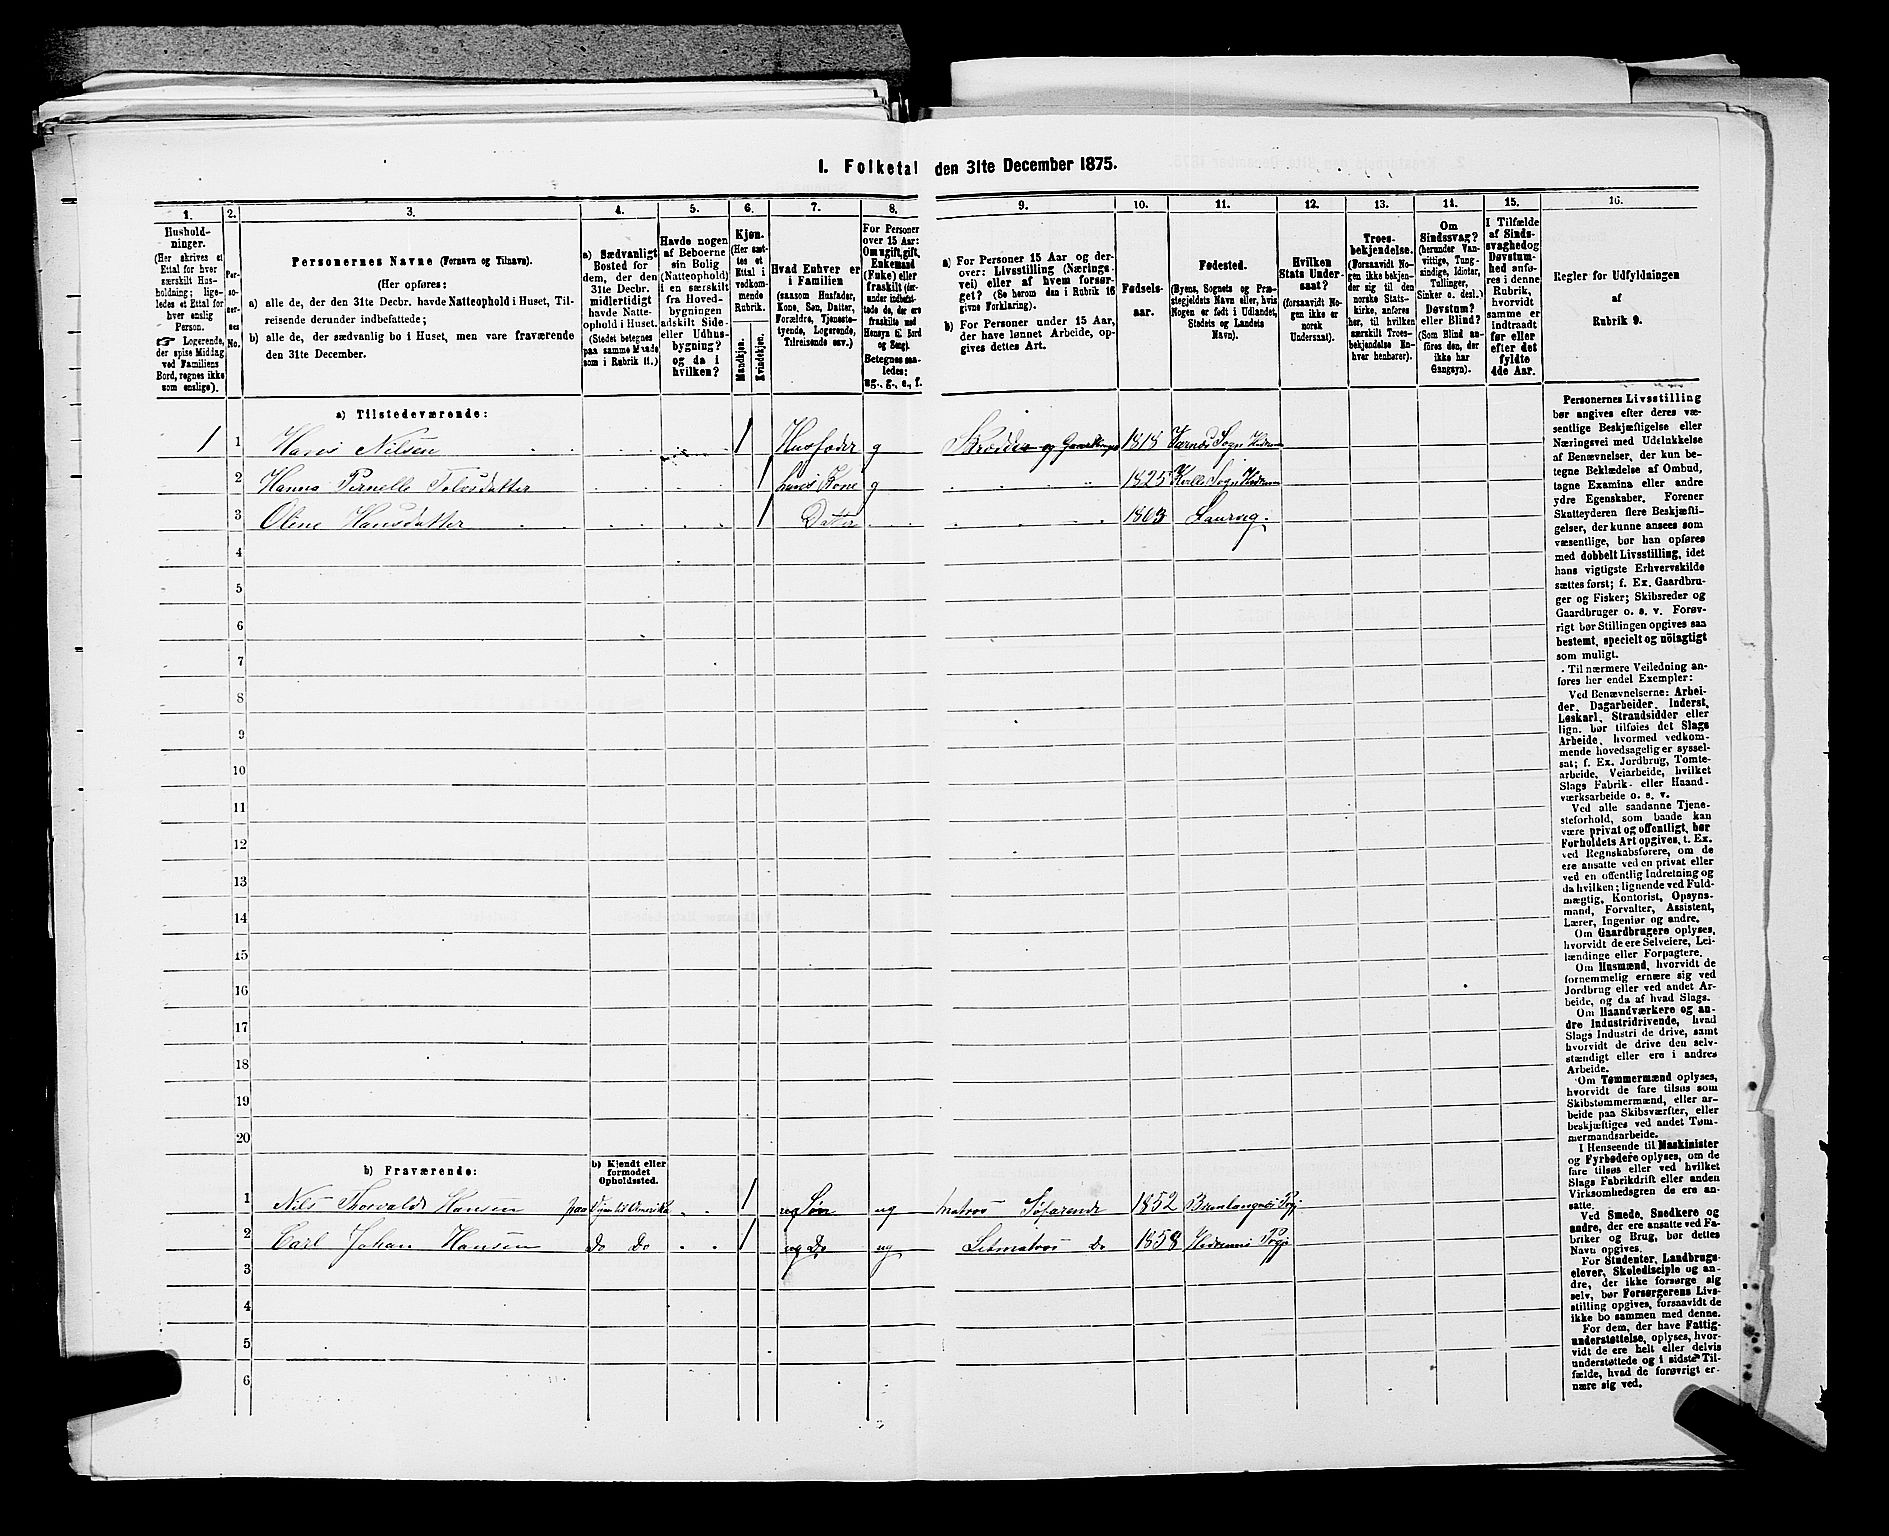 1. Folketal den 31te December 1875.
1. 2. 3. 4. 5. 6. 7. 8. 9. 10. 11. 12. 13. 14. 15. 16.
Hushold-
ninger.
(Her skrives et
Ettal for hver
særskilt Hus-
holdning; lige-
ledes et Ettal for
hver enslig
Person.
☞ Logerende,
der spise Middag
ved Familiens
Bord, regnes ikke
som enslige).
Per-
so-
ner-
nes
No.
Personernes Navne (Fornavn og Tilnavn).
(Her opføres:
a) alle de, der den 31te Decbr. havde Natteophold i Huset, Til-
reisende derunder indbefattede;
b) alle de, der sædvanlig bo i Huset, men vare fraværende
den 31te December.
a) Sædvanligt
Bosted for
dem, der den
31te Decbr.
midlertidigt
havde Natte-
ophold i Huset.
(Stedet betegnes
paa samme Maade
som i Rubrik 11.)
Havde nogen
af Beboerne
sin Bolig
(Natteophold)
i en særskilt
fra Hoved-
bygningen
adskilt Side-
eller Udhus-
bygning?
og da i
hvilken?
Kjøn.
(Her sæt-
tes et
Ettal i
vedkom-
mende
Rubrik.
Mandkjøn.
Kvindekjøn.
Hvad Enhver er
i Familien
(saasom Husfader,
Kone, Søn, Datter,
Forældre, Tjeneste-
tyende, Logerende,
Tilreisende osv.)
For Personer
over 15 Aar:
Om ugift, gift,
Enkemand
(Enke) eller
fraskilt (der-
under indbefat-
tede de, der ere
fraskilte med
Hensyn til Bord
og Seng).
Betegnes saa-
ledes:
ug., g., e., f.
a) For Personer 15 Aar og der-
over: Livsstilling (Nærings-
vei) eller af hvem forsør-
get? (Se herom den i Rubrik 16
givne Forklaring).
b) For Personer under 15 Aar,
der have lønnet Arbeide, op-
gives dettes Art.
Fødsels-
aar.
Fødested.
(Byens, Sognets og Præ-
stegjeldets Navn eller, hvis
Nogen er født i Udlandet,
Stedets og Landets
Navn).
Hvilken
Stats Under-
saat?
(forsaavidt No-
gen ikke er
norsk
Undersaat).
Troes-
bekjendelse.
(Forsaavidt No-
gen ikke bekjen-
der sig til den
norske Stats-
kirke, anføres
her, til hvilken
særskilt Troes-
bekjendelse En-
hver henhører).
Om
Sindssvag?
(herunder Van-
vittige, Tung-
sindige, Idioter,
Tullinger,
Sinker o. desl.)
Døvstum?
eller Blind?
(Som Blind an-
føres den, der
ikke har
Gangsyn).
I Tilfælde
af Sinds-
svaghed og
Døvstum-
hed anfø-
res i denne
Rubrik,
hvorvidt
samme er
indtraadt
før eller
efter det
fyldte
4de Aar.
Regler for Udfyldningen
af
Rubrik 9.
a) Tilstedeværende:
1 1 Hans Nilsen 1 Husfader g Skrædder og Gaardbruger 1818 Sogn Hedrum
2 Hanna Pernelle Tolvsdatter 1 hans Kone g 1825 Kvelle Sogn Hedrum
3 Oline Hansdatter 1 Datter 1863 Laurvig.
4
5
6
7
8
9
10
11
12
13
14
15
16
17
18
19
20
b) Fraværende:
b) Kjendt eller
formodet
Opholdssted.
1 Nils Thorvald Hansen paa Amerika 1 Søn ug Matros Søfarende 1852 Brunlangnæs Pgj
2 Carl Johan Hansen Do Do 1 Do ug Letmatros Do 1858 Hedrums Pgj
3
4
5
6
Personernes Livsstilling
bør angives efter deres væ-
sentlige Beskjæftigelse eller
Næringsvei med Udelukkelse
af Benævnelser, der kun be-
tegne Beklædelse af Ombud,
tagne Examina eller andre
ydre Egenskaber. Forener
Skatteyderen flere Beskjæfti-
gelser, der kunne ansees som
væsentlige, bør han opføres
med dobbelt Livsstilling, idet
hans vigtigste Erhvervskilde
sættes først; f. Ex. Gaardbru-
ger og Fisker; Skibsreder og
Gaardbruger o. s. v. Forøv-
rigt bør Stillingen opgives saa
bestemt, specielt og nöiagtigt
som muligt.
Til nærmere Veiledning an-
føres her endel Exempler:
Ved Benævnelserne: Arbei-
der, Dagarbeider, Inderst,
Løskarl, Strandsidder eller
lign. bør tilføies det Slags
Arbeide, hvormed vedkom-
mende hovedsagelig er syssel-
sat; f. Ex. Jordbrug, Tomte-
arbeide, Veiarbeide, hvilket
Slags Fabrik- eller Haand-
værksarbeide o. s. v.
Ved alle saadanne Tjene-
steforhold, som baade kan
være privat og offentligt, bør
Forholdets Art opgives, t. Ex.
ved Regnskabsførere, om de
ere ansatte ved en privat eller
ved en offentlig Indretning og
da hvilken; lignende ved Fuld-
mægtig, Kontorist, Opsyns-
mand, Forvalter, Assistent,
Lærer, Ingeniør og andre.
Om Gaardbrugere oplyses,
hvorvidt de ere Selveiere, Lei-
lændinge eller Forpagtere.
Om Husmænd, hvorvidt de
fornemmelig ernære sig ved
Jordbrug eller ved andet Ar-
beide, og da af hvad Slags.
Om Haandværkere og an-
dre Industridrivende, hvad
Slags Industri de drive, samt
hvorvidt de drive den selv-
stændigt eller ere i andres
Arbeide.
Om Tømmermænd oplyses,
hvorvidt de fare tilsøs som
Skibstømmermænd, eller ar-
beide paa Skibsværfter, eller
beskjæftiges ved andet Tøm-
mermandsarbeide.
I Henseende til Maskinister
og Fyrbødere oplyses, om de
fare tilsøs eller ved hvilket
Slags Fabrikdrift eller anden
Virksomhedsgren de ere an-
satte.
Ved Smede, Snedkere og
andre, der ere ansatte ved Fa-
briker og Brug, bør dettes
Navn opgives.
For Studenter, Landbrugs-
elever, Skoledisciple og an-
dre, der ikke forsørge sig
selv, bør Forsørgerens Livs-
stilling opgives, forsaavidt de
ikke bo sammen med denne.
For dem, der have Fattig-
understøttelse, oplyses, hvor-
vidt de ere helt eller delvis
understøttede og i sidste Til-
fælde, hvad de forøvrigt er-
nære sig ved.